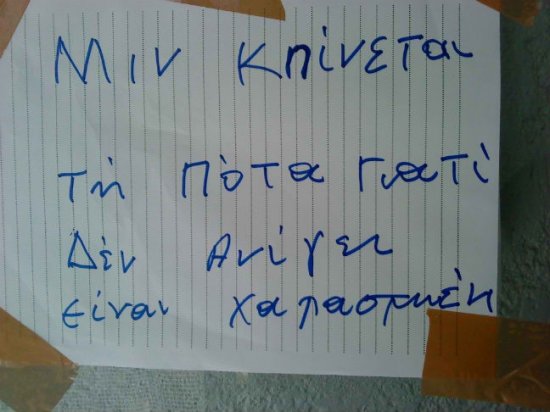 Μιν κπίνεται
τή πότα γιατί
Δέν Ανίγει
είναι χαπασμένη